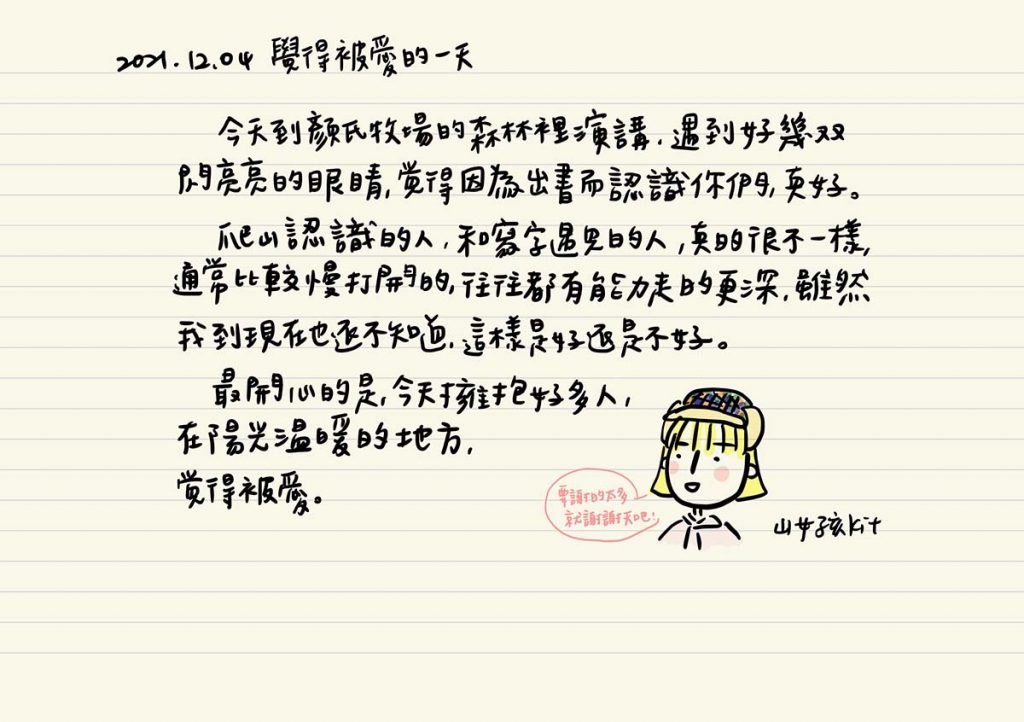 2021.12.04 覺得被愛的一天
今天到顏氏牧場的森林裡演講,遇到好幾双
閃亮亮的眼睛,覚得因為出書而認識你們,真好。
爬山認識的人,和寫字遇見的人,真的很不一樣,
通常比較慢打開的,往往都有能力走的更深,雖然
我到現在也还不知道,這樣是好还是不好。
最開心的是,今天擁抱好多人,
在陽光溫暖的地方,
覚得被愛。
要謝的太多
就謝謝天吧!
山女孩Kit